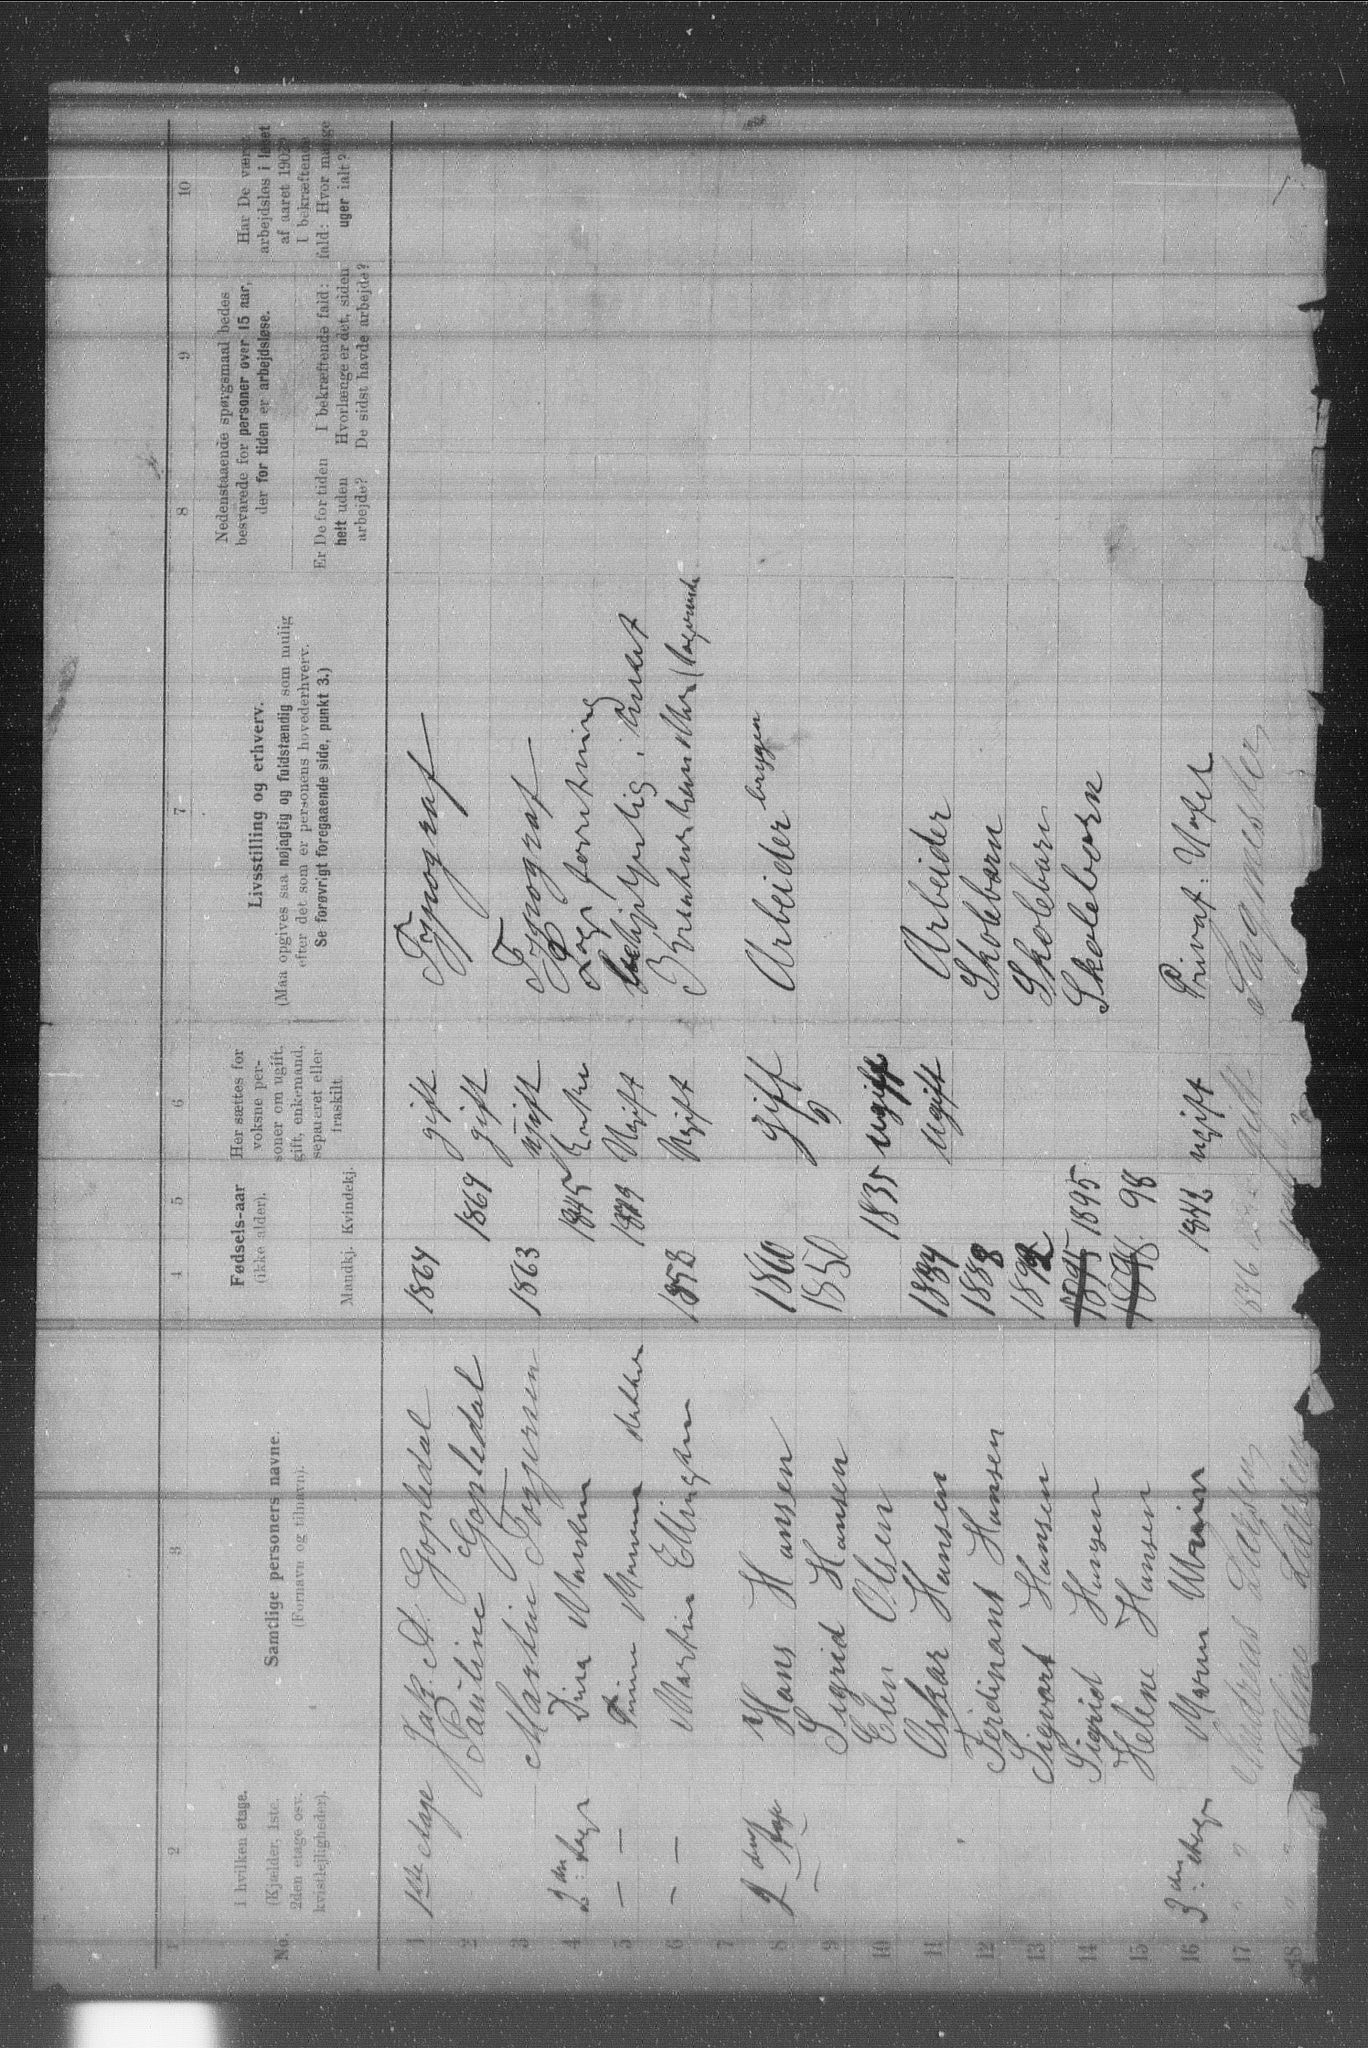 1 2 3 4 5 6 7 8 9 10
No.
I hvilken etage.
(Kjælder, 1ste,
2den etage osv.
kvistlejligheder).
Samtlige personers navne.
(Fornavn og tilnavn).
Fødsels-aar
(ikke alder).
Mandkj. Kvindekj.
Her sættes for
voksne per-
soner om ugift,
gift, enkemand,
separeret eller
fraskilt.
Livsstilling og erhverv.
(Maa opgives saa nøjagtig og fuldstændig som mulig
efter det som er personens hovederhverv.
Se forøvrigt foregaaende side, punkt 3.)
Nedenstaaende spørgsmaal bedes
besvarede for personer over 15 aar,
der for tiden er arbejdsløse.
Er De for tiden
helt uden
arbejde?
I bekræftende fald:
Hvorlænge er det, siden
De sidst havde arbejde?
Har De været
arbejdsløs i løbet
af aaret 1902?
I bekræftende
fald: Hvor mange
uger ialt?
1 1ste Etage Jak. A. Gopledal 1864 gift Typograf
2 Pauline Gopledal 1869 gift
3 Martin Torgersen 1863 ugift Typograf
4 2den Etage Dina 1845 Enke forretning
5 — — 1879 Ugift
6 — — Martin Ellingsen 1858 Ugift
7
8 2den Hans Hansen 1860 gift Arbeider bryggen
9 — Sigrid Hansen 1850
10 Elen Olsen 1835 ugift
11 Oskar Hansen 1884 ugift Arbeider
12 Ferdinant Hansen 1888 Skolebarn
13 Sigvart Hansen 1892 Skolebarn
14 Sigrid Hansen 1895 1895 Skoleborn
15 Helene Hansen 1898 98
16 3den Etage Maren 1842 ugift Privat
17 " " Andreas Larsen 1846 gift Sagmester
18 " " Larsen